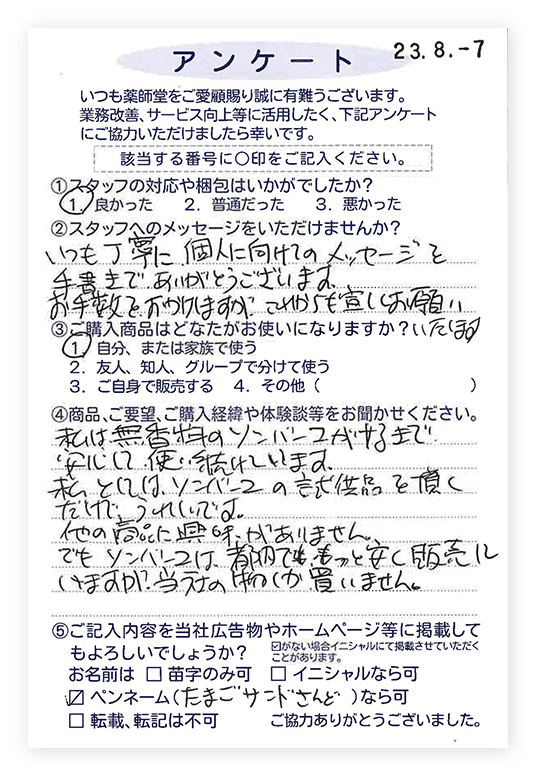 アンケート
23.8.-7
いつも薬師堂をご愛顧賜り誠に有難うございます。
業務改善、サービス向上等に活用したく、下記アンケート
にご協力いただけましたら幸いです。
該当する番号に〇印をご記入ください。
①スタッフの対応や梱包はいかがでしたか?
1. 良かった 2. 普通だった 3. 悪かった
②スタッフへのメッセージをいただけませんか?
いつも丁寧に個人に向けてのメッセージを
手書きで、ありがとうございます。
お手数をおかけしますが、これからも宜しくお願い
③ご購入商品はどなたがお使いになりますか?いたします
1. 自分、または家族で使う
2. 友人、知人、グループで分けて使う
3. ご自身で販売する 4. その他( )
④商品、ご要望、ご購入経緯や体験談等をお聞かせください。
私は無香料のソンバーユが
安心して使い続けています。
私としては、ソンバーユの試供品を頂く
だけで、うれしいです。
他の商品に興味がありません。
でもソンバーユは、もっと安く販売して
いますが、当社の物しか買いません。
⑤ご記入内容を当社広告物やホームページ等に掲載して
もよろしいでしょうか?
☑がない場合イニシャルにて掲載させていただく
ことがあります。
お名前は □ 苗字のみ可 □ イニシャルなら可
☑ ペンネーム(たまごサンドさんど)なら可
□ 転載、転記は不可 ご協力ありがとうございました。